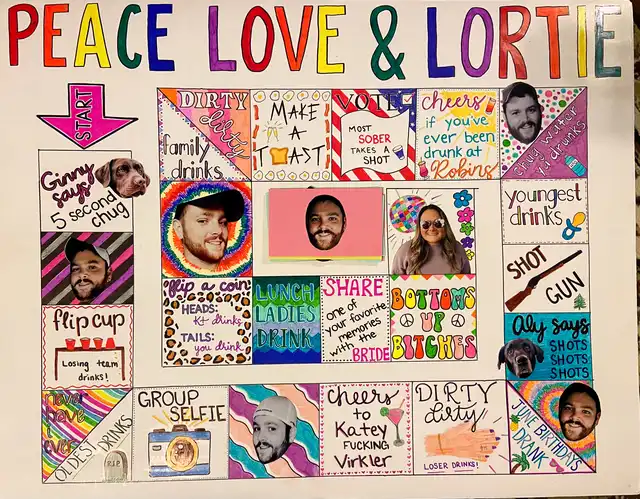 PEACE LOVE & LORTIE
START
Ginny
says
5 second
chug
flip cup
Losing team
drinks!
never
have i
ever
OLDEST DRINKS
R.I.P
GROUP
SELFIE
Cheers
to
Katey
FUCKING
Virkler
DIRTY
dirty
LOSER DRINKS!
JUNE BIRTHDAYS
DRANK
Aly says
SHOTS
SHOTS
SHOTS
SHOT
GUN
youngest
drinks
chug water
ya drunks
cheers
if you've
ever been
drunk at
Robins
VOTE
MOST
SOBER
TAKES A
SHOT
MAKE
A
TOAST
DIRTY
dirty
family
drinks
flip a coin
HEADS:
K+ drinks
TAILS:
you drink
LUNCH
LADIES
DRINK
SHARE
one of
your favorite
memories
with the
BRIDE
BOTTOMS
UP
BITCHES